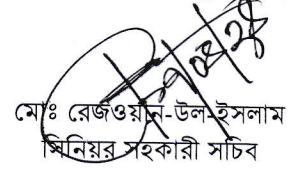 মোঃ রেজওয়ান-উল-ইসলাম
সিনিয়র সহকারী সচিব